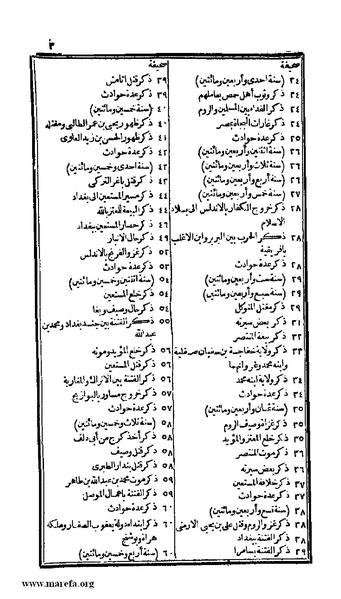 ٣
صحيفة
٢٤ (سنة احدى وأربعين ومائتين)
٢٤ ذكر وثوب أهل حمص بعاملهم
٢٤ ذكر الفداء بين المسلمين والروم
٢٤ ذكر غارات البجاة بمصر
٢٥ ذكر عدة حوادث
٢٦ (سنة اثنتين وأربعين ومائتين)
٢٦ (سنة ثلاث وأربعين ومائتين)
٢٦ (سنة أربع وأربعين ومائتين)
٢٧ (سنة خمس وأربعين ومائتين)
٢٨ ذكر خروج الكفار بالاندلس الى بلاد
الاسلام
٢٨ ذكر الحرب بين البربر وابن الاغلب
بافريقية
٢٨ ذكر عدة حوادث
٢٩ (سنة ست وأربعين ومائتين)
٢٩ (سنة سبع وأربعين ومائتين)
٢٩ ذكر مقتل المتوكل
٣١ ذكر بعض سيرته
٣٢ ذكر بيعة المنتصر
٣٣ ذكر ولاية خفاجة بن سفيان صقلية
وابنه محمد وغزواتهما
٣٤ ذكر ولاية ابنه محمد
٣٤ ذكر عدة حوادث
٣٥ (سنة ثمان وأربعين ومائتين)
٣٥ ذكر غزاة وصيف الروم
٣٥ ذكر خلع المعتز والمؤيد
٣٦ ذكر موت المنتصر
٣٦ ذكر بعض سيرته
٣٧ ذكر خلافة المستعين
٣٧ ذكر عدة حوادث
٣٨ (سنة تسع وأربعين ومائتين)
٣٨ ذكر غزو الروم وقتل على بن يحيى الارمنى
٣٨ ذكر الفتنة ببغداد
٣٩ ذكر الفتنة بسامرا
صحيفة
٣٩ ذكر قتل اتامش
٣٩ ذكر عدة حوادث
٤٠ (سنة خمسين ومائتين)
٤٠ ذكر ظهور يحيى بن عمر الطالبى ومقتله
٤١ ذكر ظهور الحسن بن زيد العلوى
٤٢ ذكر عدة حوادث
٤٢ (سنة احدى وخمسين ومائتين)
٤٢ ذكر قتل باغر التركى
٤٣ ذكر مسير المستعين الى بغداد
٤٤ ذكر البيعة للمعتز بالله
٤٤ ذكر حصار المستعين ببغداد
٤٩ ذكر حال الانبار
٥٢ ذكر غزو الفرنج بالاندلس
٥٢ ذكر عدة حوادث
٥٤ (سنة اثنتين وخمسين ومائتين)
٥٤ ذكر خلع المستعين
٥٤ ذكر حال وصيف وبغا
٥٥ ذكر الفتنة بين جند بغداد ومحمد بن
عبد الله
٥٦ ذكر خلع المؤيد وموته
٥٦ ذكر قتل المستعين
٥٦ ذكر الفتنة بين الاتراك والمغاربة
٥٧ ذكر خروج مساور بالبوازيج
٥٧ ذكر عدة حوادث
٥٨ (سنة ثلاث وخمسين ومائتين)
٥٨ ذكر أخذ كرج من أبى دلف
٥٨ ذكر قتل وصيف
٥٨ ذكر قتل بندار الطبرى
٥٩ ذكر موت محمد بن عبد الله بن طاهر
٥٩ ذكر الفتنة باعمال الموصل
٦٠ ذكر عدة حوادث
٦٠ ذكر ابتداء دولة يعقوب الصفار وملكه
هراة وبوشنج
٦٠ (سنة أربع وخمسين ومائتين)
www.marefa.org